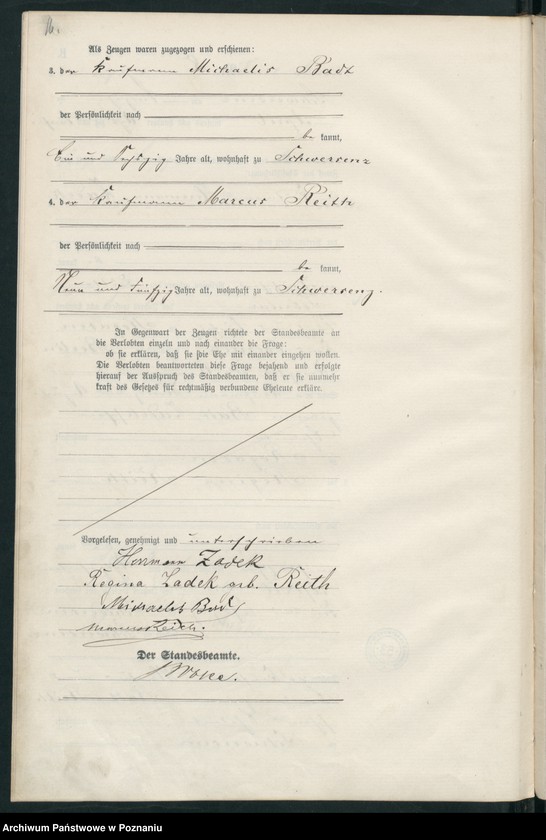 16.
Als Zeugen waren zugezogen und erschienen:
3. der Kaufmann Michaelis Badt
der Persönlichkeit nach
be kannt,
Ein und Sechszig Jahre alt, wohnhaft zu Schwersenz
4. der Kaufmann Marcus Reith
der Persönlichkeit nach
be kannt,
Neun und Fünfzig Jahre alt, wohnhaft zu Schwersenz.
In Gegenwart der Zeugen richtete der Standesbeamte an
die Verlobten einzeln und nach einander die Frage:
ob sie erklären, daß sie die Ehe mit einander eingehen wollen.
Die Verlobten beantworteten diese Frage bejahend und erfolgte
hierauf der Ausspruch des Standesbeamten, daß er sie nunmehr
kraft des Gesetzes für rechtmäßig verbundene Eheleute erkläre.
Vorgelesen, genehmigt und unterschrieben
Herrmann Zadek
Regina Zadek geb. Reith
Michaelis Badt
Marcus Reith.
Der Standesbeamte.
Archiwum Państwowe w Poznaniu